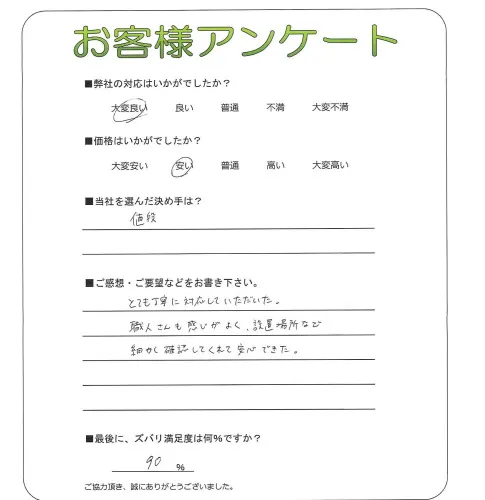 お客様アンケート
■弊社の対応はいかがでしたか？
大変良い 良い 普通 不満 大変不満
■価格はいかがでしたか？
大変安い 安い 普通 高い 大変高い
■当社を選んだ決め手は？
値段
■ご感想・ご要望などをお書き下さい。
とても丁寧に対応していただいた。
職人さんも感じがよく、設置場所なび
細かく確認してくれて安心できた。
■最後に、ズバリ満足度は何％ですか？
90 ％
ご協力頂き、誠にありがとうございました。